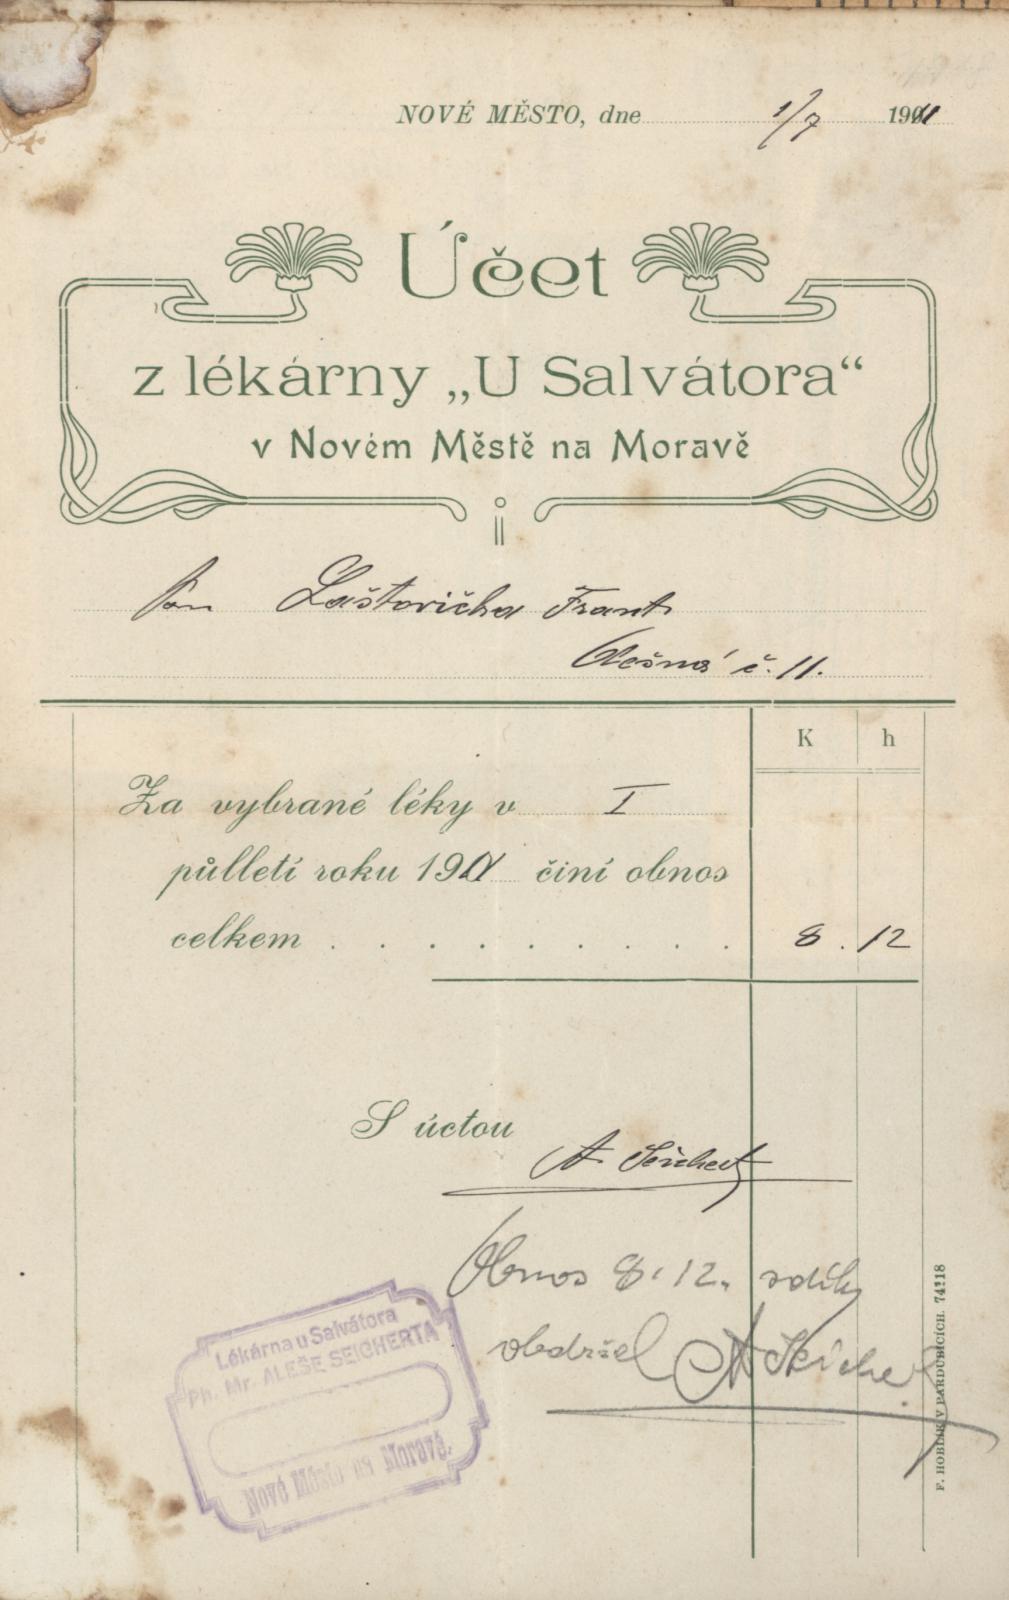 NOVÉ MĚSTO, dne 1/7 1911
Účet
z lékárny „U Salvátora“
v Novém Městě na Moravě
Pan Laštovička Frant.
Olešná č. 11.
K h
Za vybrané léky v I
půlletí roku 1911 činí obnos
celkem . . . . . . . . . 8 . 12
S úctou
A. Seichert
Obnos 8.12. s díky
obdržel A Seichert
Lékárna u Salvátora
Ph. Mr. ALEŠE SEICHERTA
Nové Město na Moravě.
F. HOBLÍK V PARDUBICÍCH. 74218